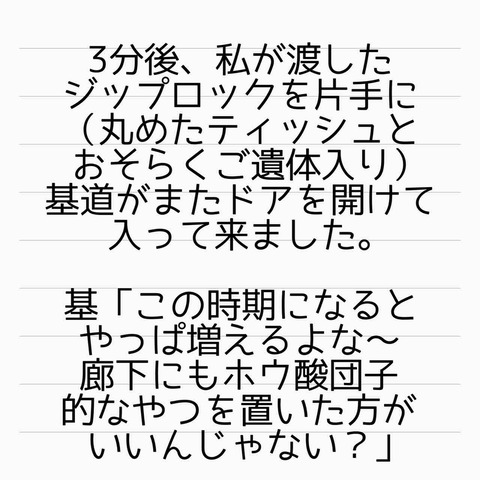 3分後、私が渡した
ジップロックを片手に
（丸めたティッシュと
おそらくご遺体入り）
基道がまたドアを開けて
入って来ました。
基「この時期になると
やっぱ増えるよな〜
廊下にもホウ酸団子
的なやつを置いた方が
いいんじゃない？」